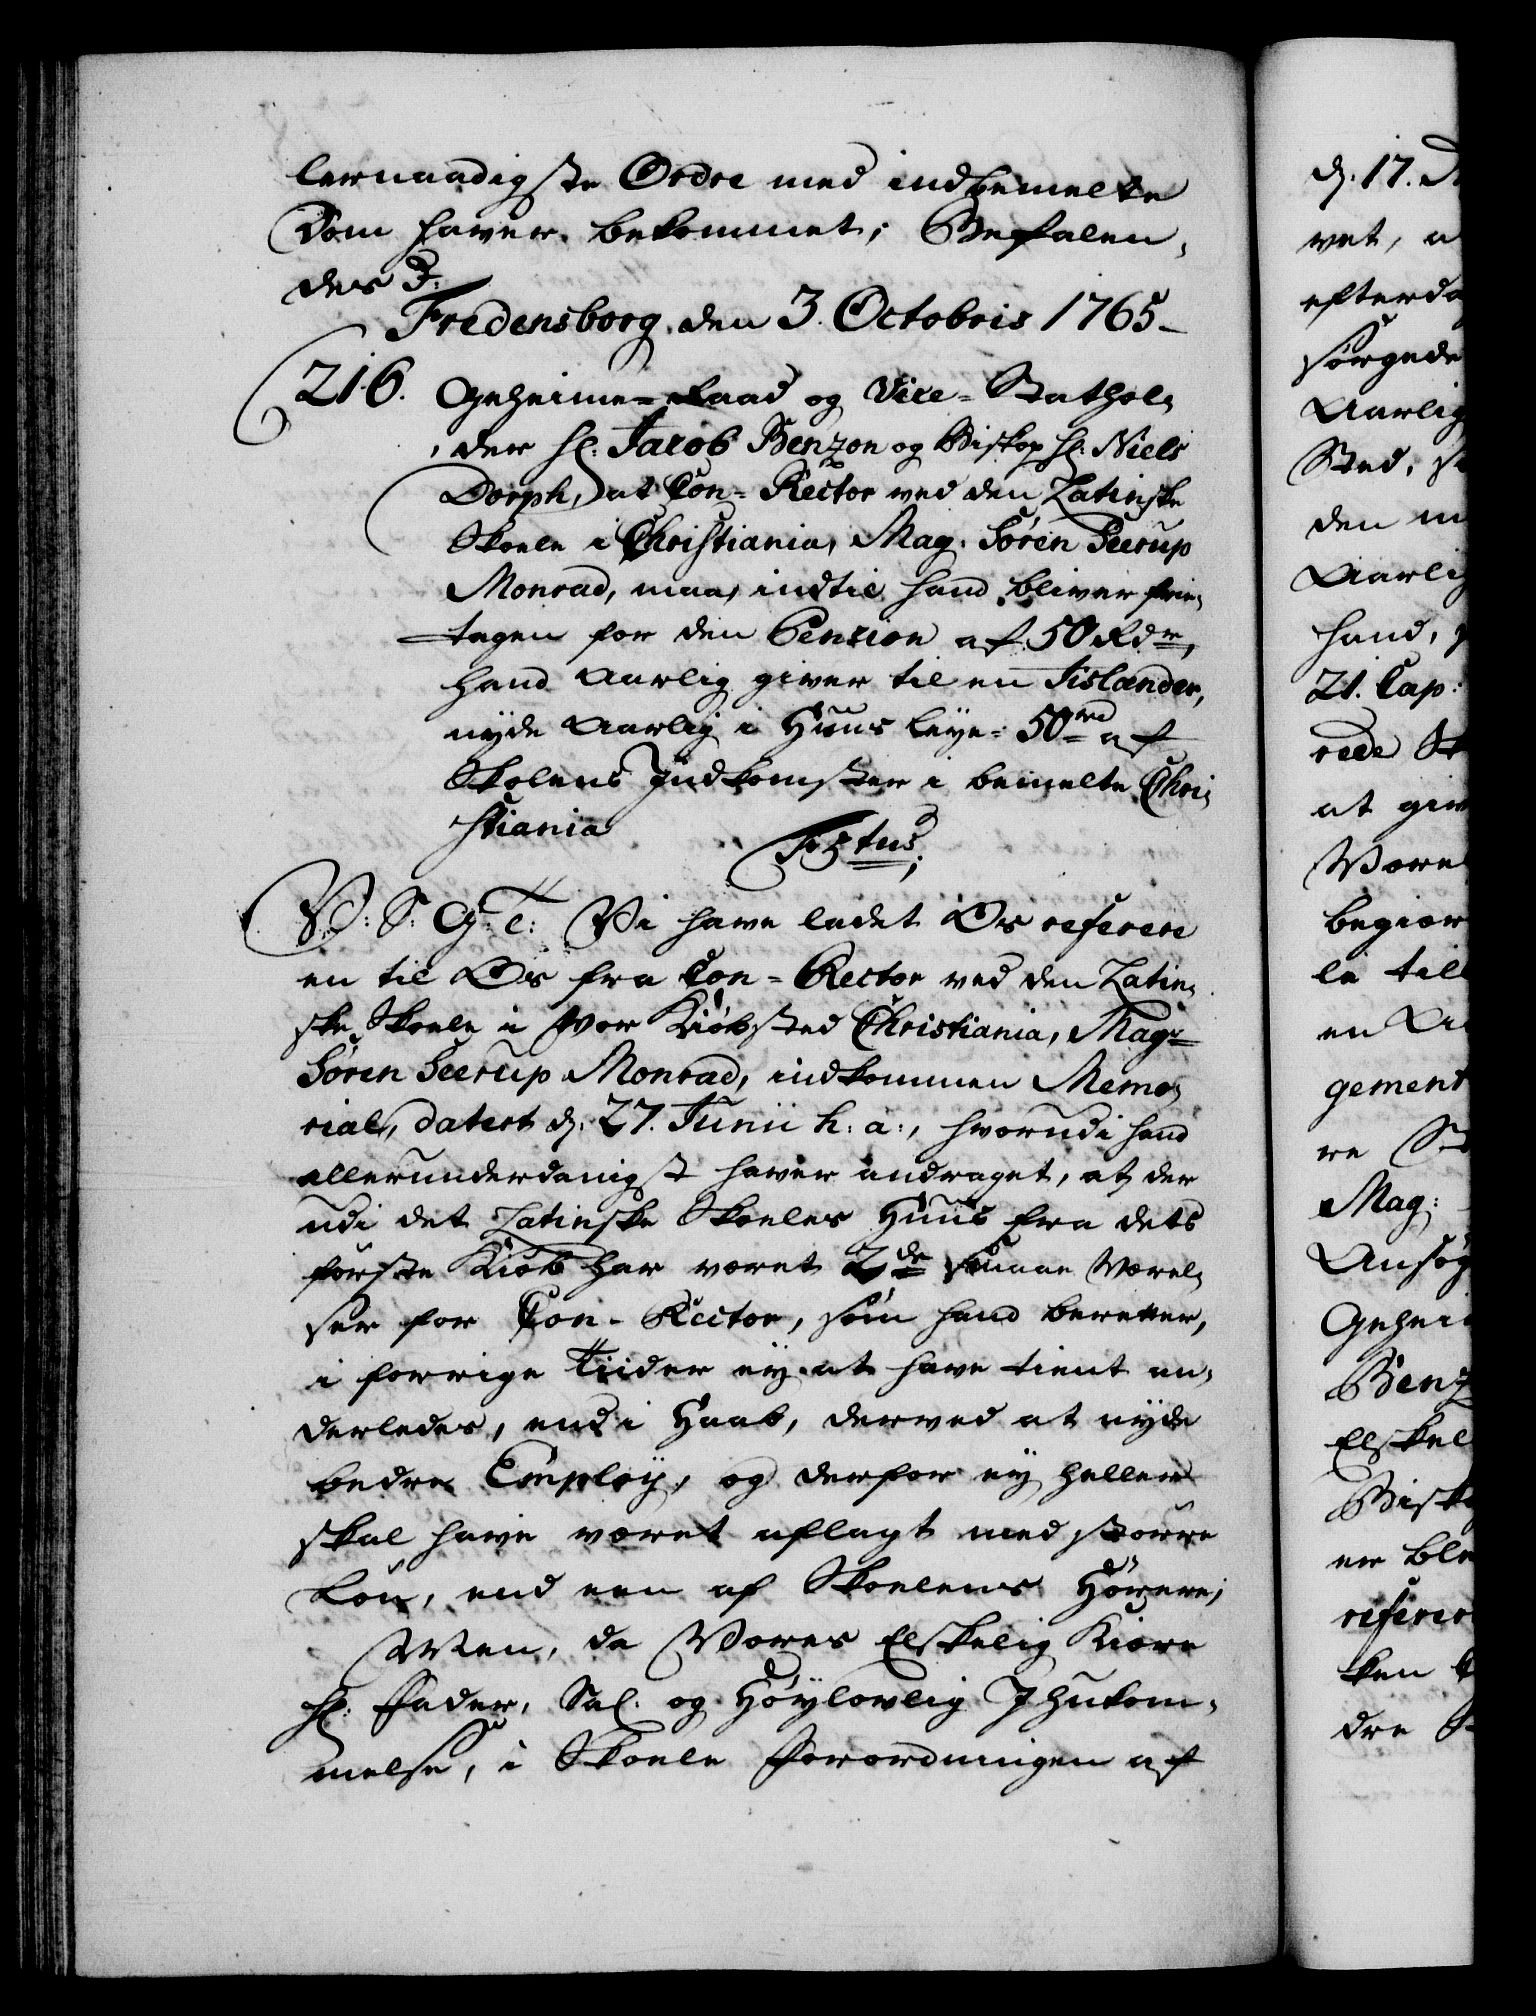 lernaadigste Ordre med indbemelte
Dom haver bekommet; Befalen,
des 3:
Fredensborg den 3. Octobris 1765–
216. Geheime-Raad og Vice-Stathol,
der Hr: Jacob Benzon og Biskop Hr: Niels
Dorph, at Con-Rector ved den Latinske
Skoele i Christiania, Mag. Søren Seerup
Monrad, maa, indtil hand bliver frie,
tagen for den Pension af 50 Rdr,
hand Aarlig giver til en Iislænder,
nyde Aarlig i Huus leye: 50 rd af
Skolens Indkomster i bemelte Chri,
stiania
V: S: G: T: Vi have ladet Os referere
en til Os fra Con-Rector ved den Latin,
ske Skoele i Vor Kiøbsted Christiania, Magr
Søren Seerup Monrad, indkommen Memo,
rial, datert d: 27. Junii h: a:, hvorudi hand
allerunderdanigst haver andraget, at der
udi det Latinske Skoeles Huus fra dets
første Kiøb har været 2de smaae Værel,
ser for Con-Rector, som hand beretter,
i forrige Tiider ey at have tient an,
derledes, end i Haab, derved at nyde
bedre Employ, og derfor ey heller
skal have været aflagt med større
Løn, end een af Skoelens Hørere;
Men, da Vores Elskelig Kiære
Hr: Fader, Sal. og Høylovlig Ihukom,
melse, i Skoele Forordningen af
d: 17.
vet, a
efterda
sørgede
Aarlig
Sted,
den m
Aarlig
hand,
21. Cap:
rede
at giv
Vore
begiær
le till
en
gement
re
Mag:
Ansøg
Gehei
Benz
Elskel
Bisk
er ble
referer
ken
dre